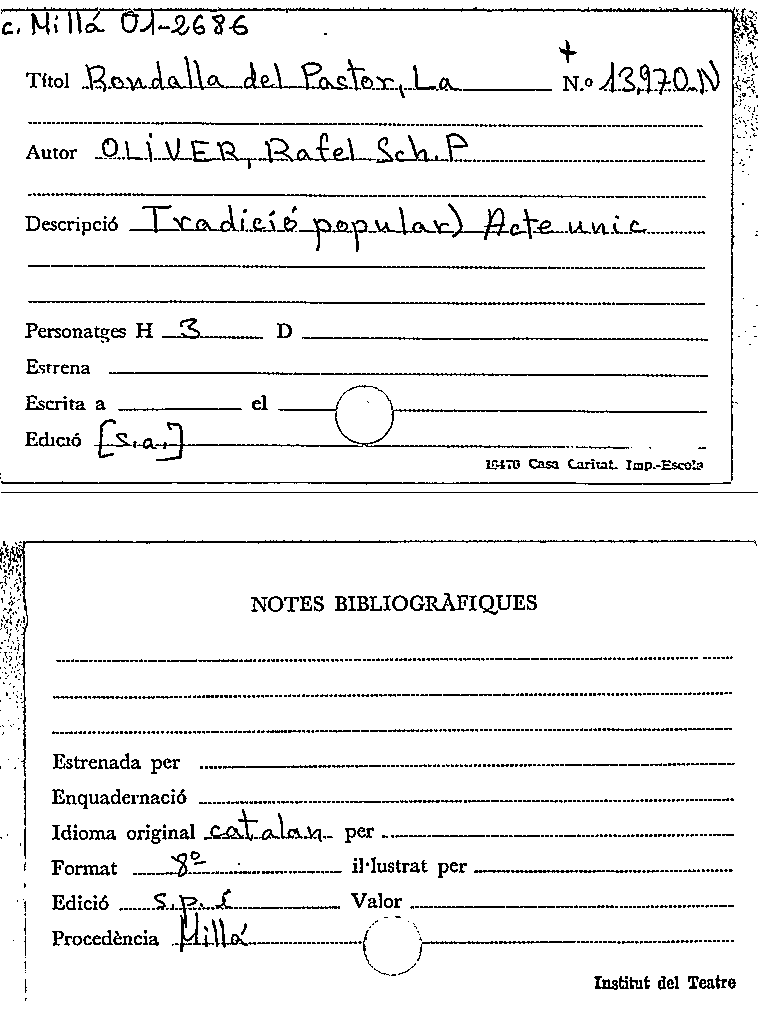 c. Millá 01-2686
Títol Rondalla del Pastor, La N.º 13,970-N
Autor OLIVER, Rafel Sch.P
Descripció Tradició popular) Acte unic
Personatges H 3 D
Estrena
Escrita a el
Edició [s.a.]
16470 Casa Caritat. Imp.-Escola
NOTES BIBLIOGRÀFIQUES
Estrenada per
Enquadernació
Idioma original catalan per
Format 8º il·lustrat per
Edició s.p.i Valor
Procedència Millá
Institut del Teatre